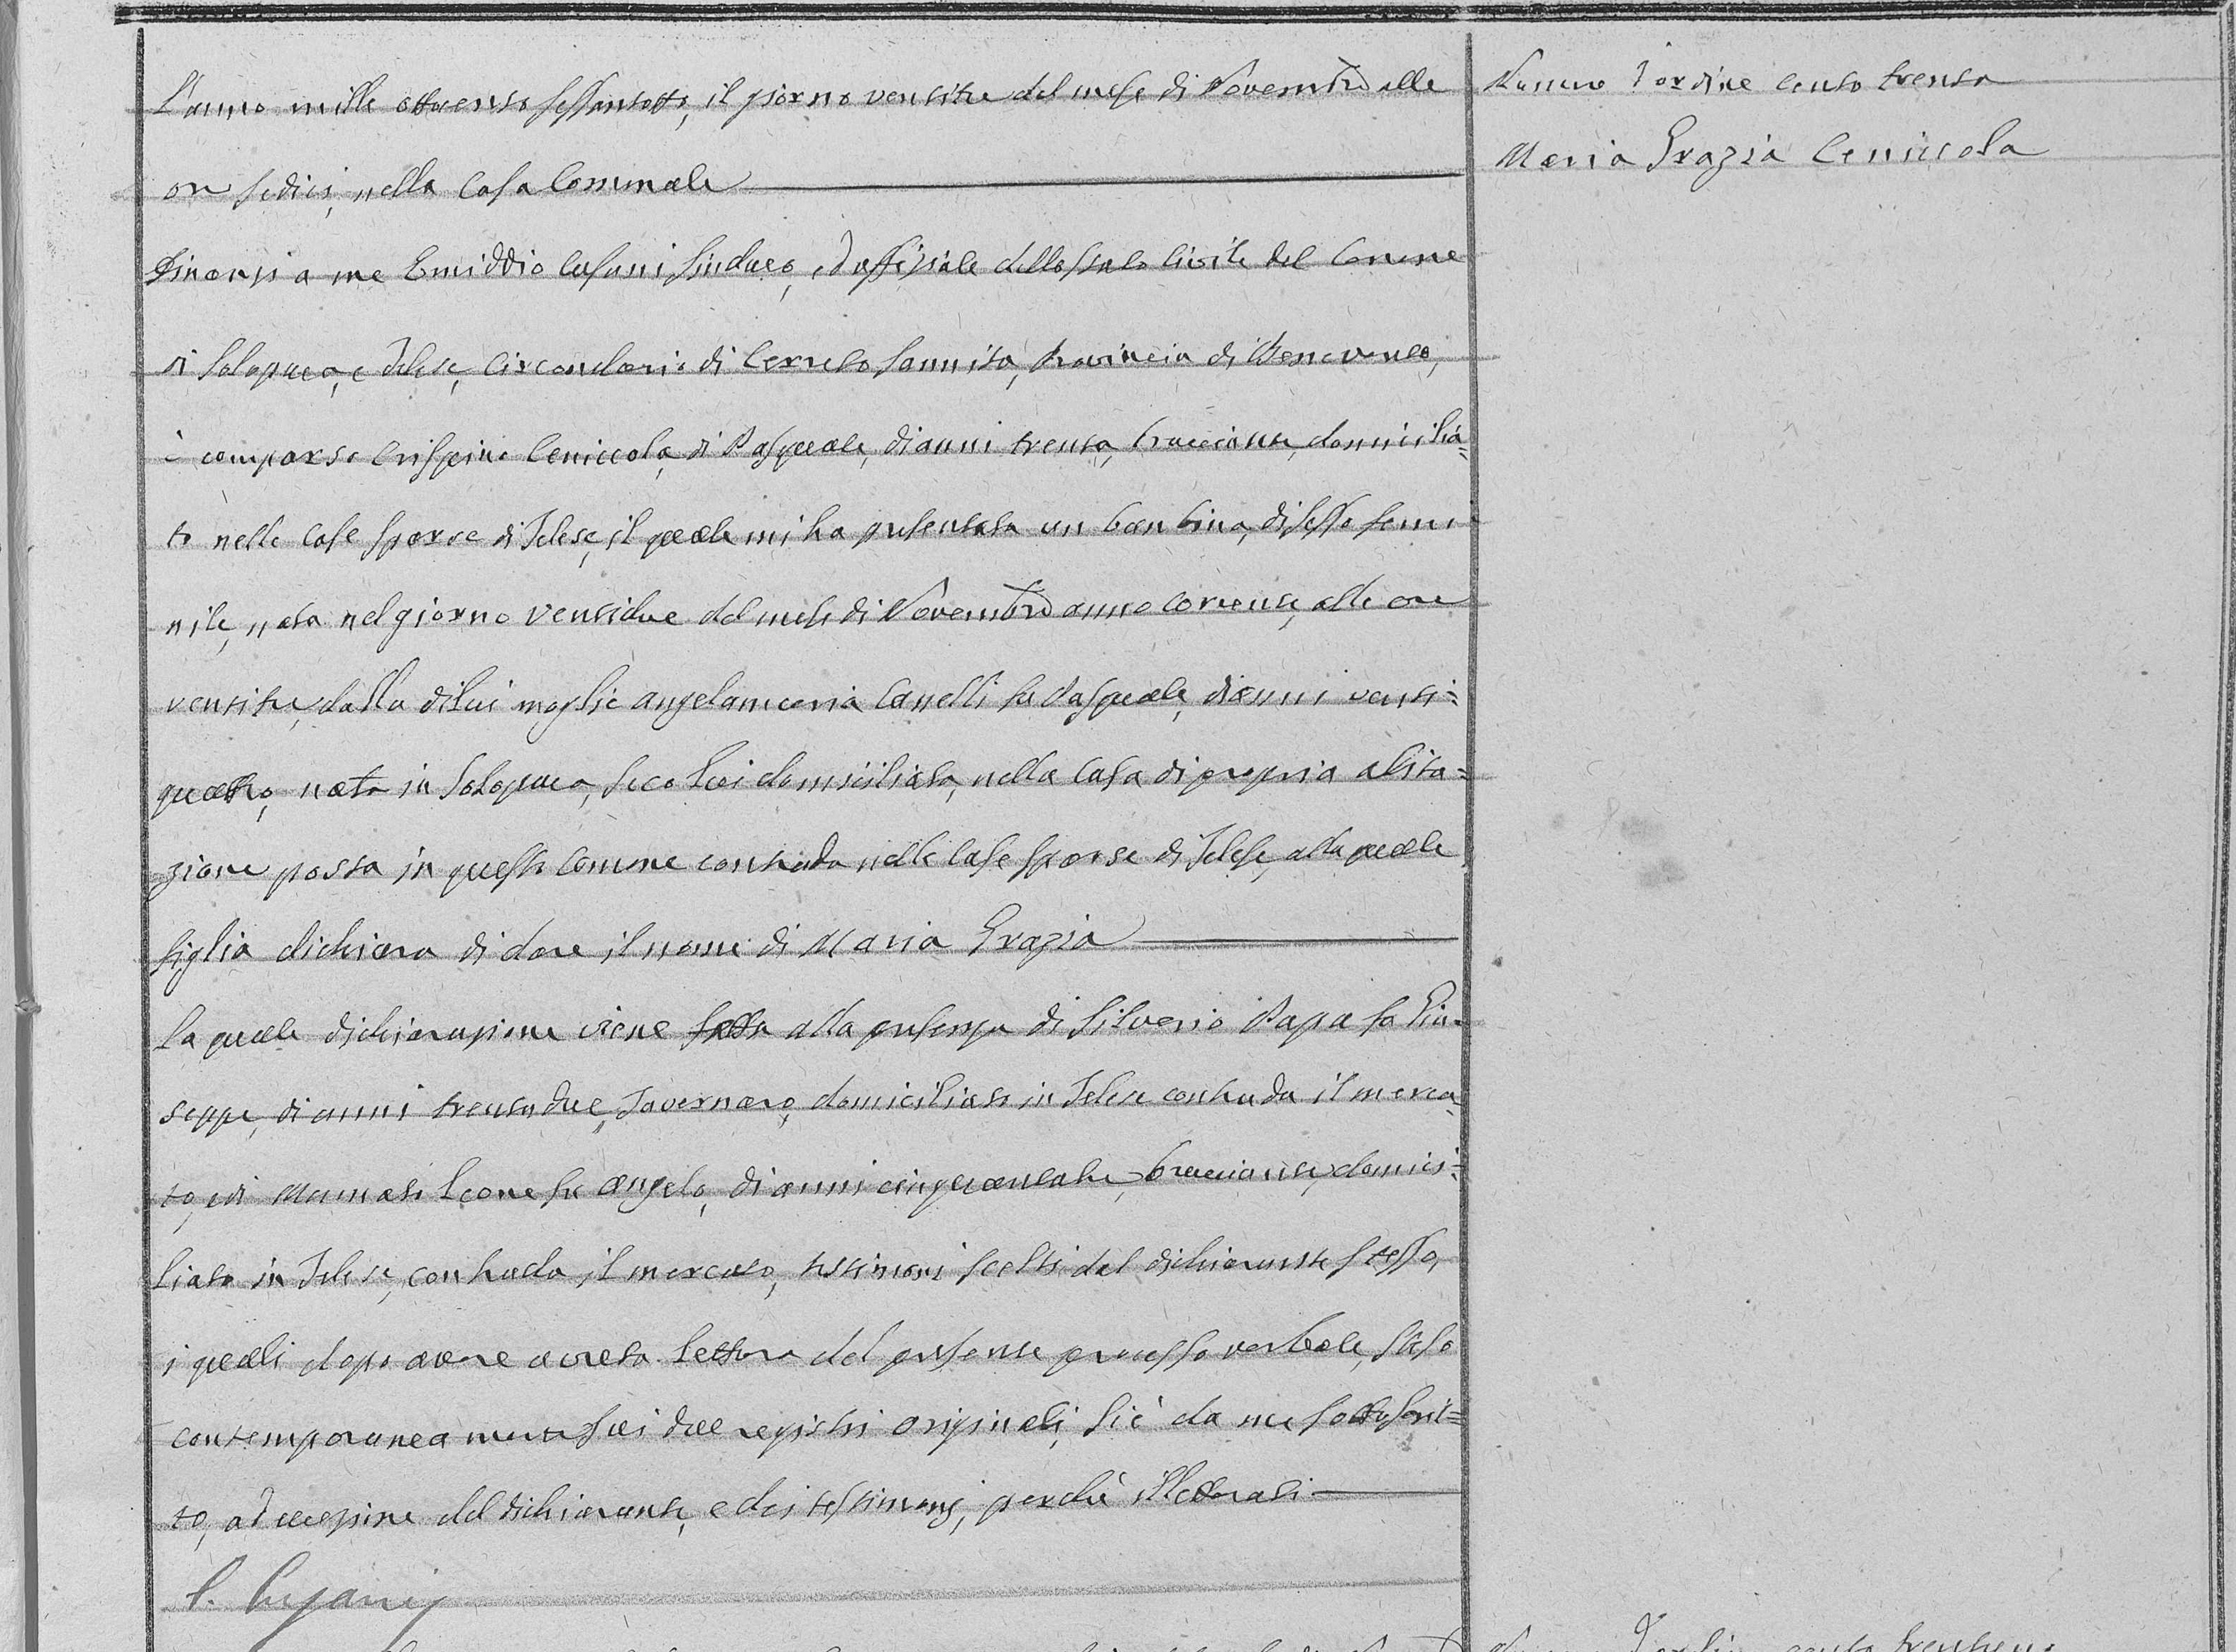 L'anno mille ottocento sessantotto, il giorno ventitre del mese di Novembre alle
ore sedici, nella Casa Comunale
Dinanzi a me Emiddio Cusani Sindaco, ed uffiziale dello stato Civile del Comune
di Solopaca, e Telese, Circondario di Cerreto Sannita, Provincia di Benevento,
è comparso Crispino Ceniccola, di Pasquale, di anni trenta, bracciante, domicilia=
to nelle Case sparse di Telese, il quale mi ha presentata un bambina, di sesso femi
nile, nata nel giorno ventidue del mese di Novembre anno corrente, alle ore
ventitre, dalla di lui moglie Angelamaria Canelli fu Pasquale, di anni venti=
quattro, nata in Solopaca, seco lui domiciliata, nella Casa di propria abita=
zione, posta in questo Comune contrada nelle Case sparse di Telese, alla quale
figlia dichiara di dare il nome di Maria Grazia
La quale dichiarazione viene fatta alla presenza di Silverio Papa fu Giu
seppe, di anni trentadue, Tavernaro, domiciliato in Telese contrada il merca=
to, e di Leone fu Angelo, di anni cinquantatre, bracciante, domici=
liato in Telese, contrada il mercato, testimoni scelti dal dichiarante stesso,
i quali dopo avere avreta lettura del presente processo verbale, steso
contemporaneamente sui due registri originali, si è da me sottoscrit=
to, ad eccezione del dichiarante, e dei testimonj, perché illetterati
E. Cusani
Numero d'ordine cento trenta
Maria Grazia Ceniccola